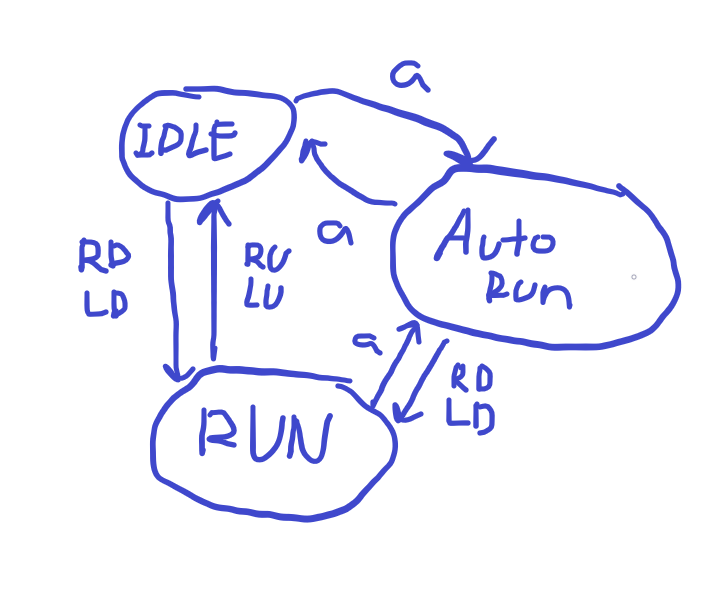 a
IDLE
a
Auto
Run
RD
LD
RU
LU
a
RD
LD
RUN